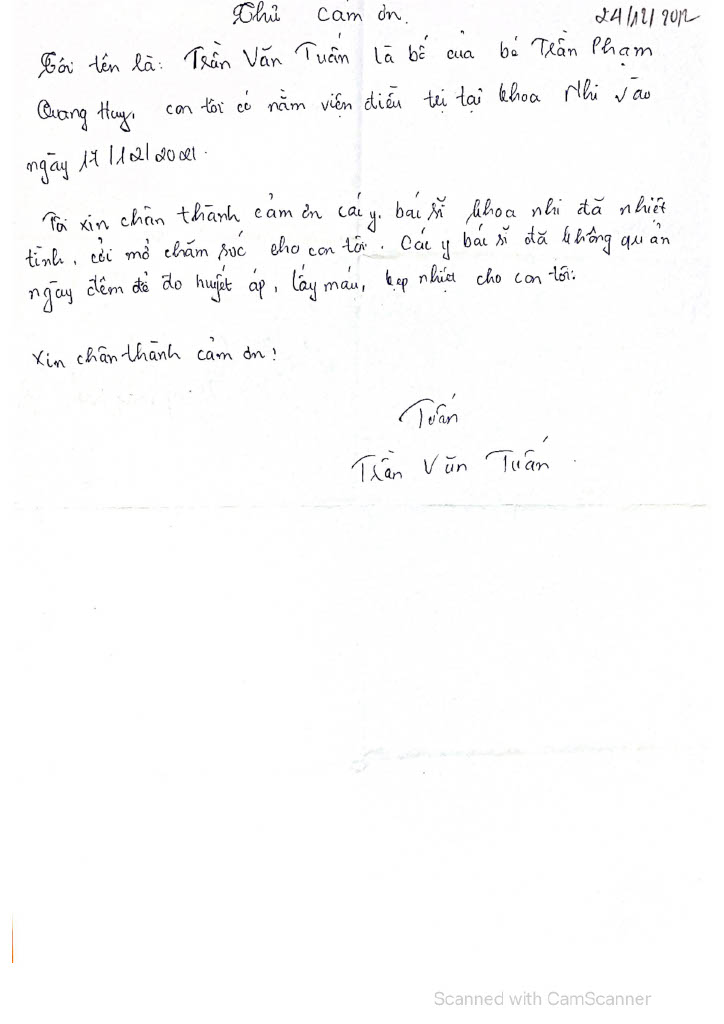 Thư cảm ơn. 24/12/2012
Tôi tên là: Trần Văn Tuấn là bố của bé Trần Phạm
Quang Huy, con tôi có nằm viện điều trị tại khoa Nhi vào
ngày 17/12/2021.
Tôi xin chân thành cảm ơn các y, bác sĩ khoa nhi đã nhiệt
tình, cởi mở chăm sóc cho con tôi. Các y bác sĩ đã không quản
ngày đêm để đo huyết áp, lấy máu, kẹp nhiệt cho con tôi.
Xin chân thành cảm ơn!
Tuấn
Trần Văn Tuấn
Scanned with CamScanner